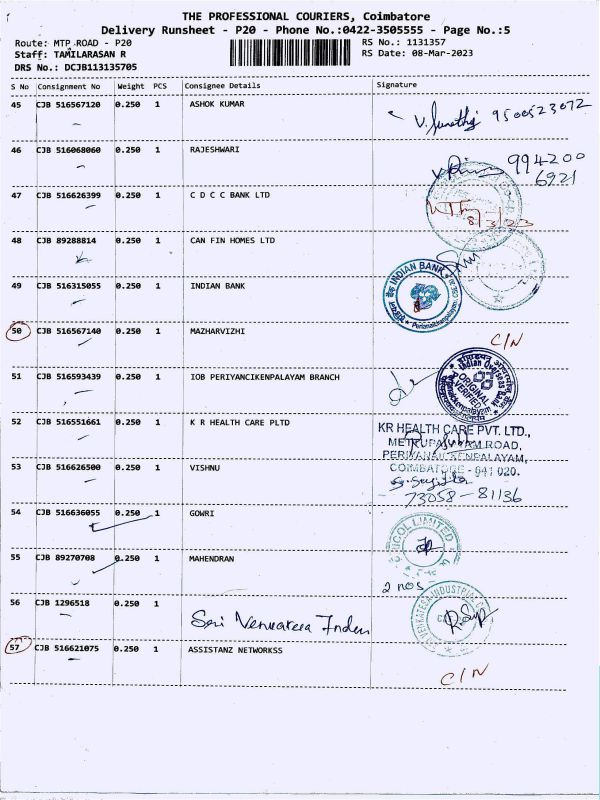 THE PROFESSIONAL COURIERS, Coimbatore
Delivery Runsheet - P20 - Phone No.:0422-3505555 - Page No.:5
Route: MTP ROAD - P20
Staff: TAMILARASAN R
DRS No.: DCJB113135705
RS No.: 1131357
RS Date: 08-Mar-2023
S No Consignment No Weight PCS Consignee Details Signature
45 CJB 516567120 0.250 1 ASHOK KUMAR
9500523072
46 CJB 516068060 0.250 1 RAJESHWARI
994200
6921
47 CJB 516626399 0.250 1 C D C C BANK LTD
8/3/23
48 CJB 89288814 0.250 1 CAN FIN HOMES LTD
49 CJB 516315055 0.250 1 INDIAN BANK
INDIAN BANK
50 CJB 516567140 0.250 1 MAZHARVIZHI
C/N
51 CJB 516593439 0.250 1 IOB PERIYANCIKENPALAYAM BRANCH
Indian Overseas Bank
ORIGINAL
VERIFIED
52 CJB 516551661 0.250 1 K R HEALTH CARE PLTD
KR HEALTH CARE PVT. LTD.,
METTUPALAYAM ROAD,
COIMBATORE - 641 020.
53 CJB 516626500 0.250 1 VISHNU
73058 - 81136
54 CJB 516636055 0.250 1 GOWRI
LIMITED
55 CJB 89270708 0.250 1 MAHENDRAN
2 nos
56 CJB 1296518 0.250 1
Sri Venkatesa Indus
57 CJB 516621075 0.250 1 ASSISTANZ NETWORKSS
C/N